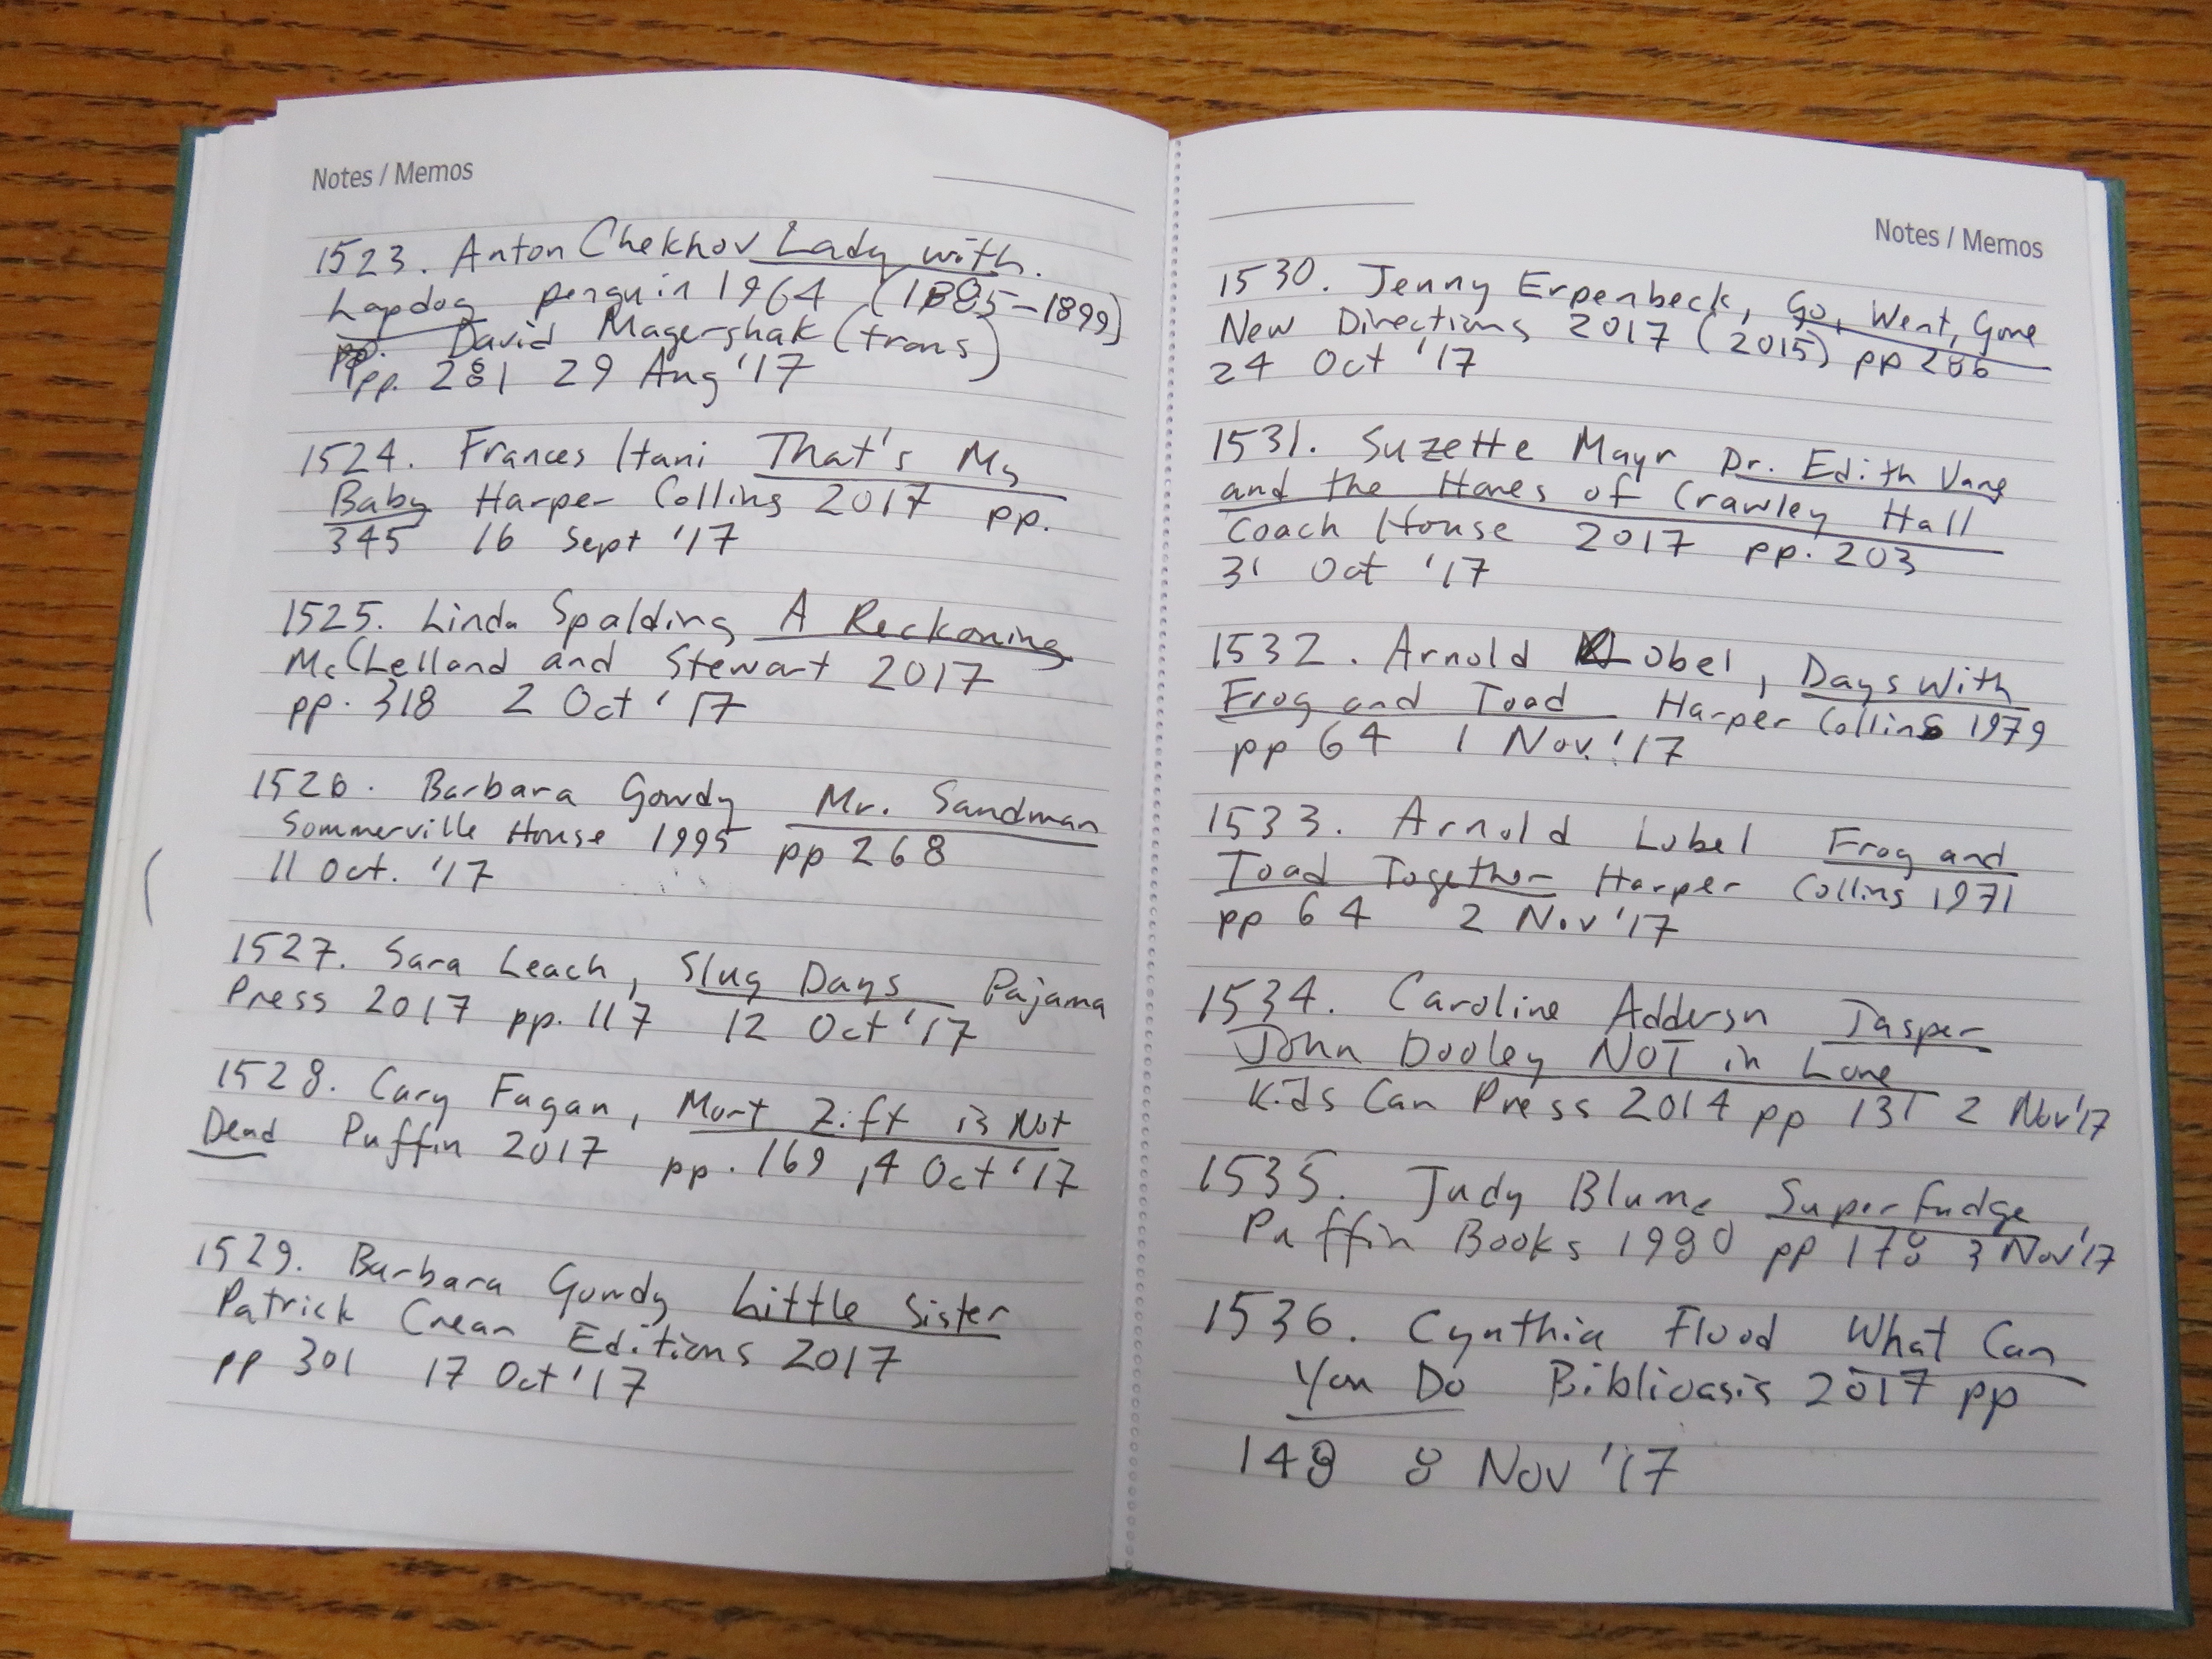 Notes / Memos
1523. Anton Chekhov Lady with
Lapdog penguin 1964 (1885-1899)
pp. David Magershak (trans)
pp. 281 29 Aug '17
1524. Frances Itani That's My
Baby Harper Collins 2017 pp.
345 16 Sept '17
1525. Linda Spalding A Reckoning
McClelland and Stewart 2017
pp. 318 2 Oct '17
1526. Barbara Gowdy Mr. Sandman
Sommerville House 1995 pp 268
11 Oct. '17
1527. Sara Leach, Slug Days Pajama
Press 2017 pp. 117 12 Oct '17
1528. Cary Fagan, Mort Zift is Not
Dead Puffin 2017 pp. 169 14 Oct '17
1529. Barbara Gowdy Little Sister
Patrick Crean Editions 2017
pp 301 17 Oct '17
Notes / Memos
1530. Jenny Erpenbeck, Go, Went, Gone
New Directions 2017 (2015) pp 286
24 Oct '17
1531. Suzette Mayr Dr. Edith Vane
and the Hares of Crawley Hall
Coach House 2017 pp. 203
31 Oct '17
1532. Arnold Lobel, Days With
Frog and Toad Harper Collins 1979
pp 64 1 Nov. '17
1533. Arnold Lobel Frog and
Toad Together Harper Collins 1971
pp 64 2 Nov '17
1534. Caroline Addersn Jasper
John Dooley NOT in Love
Kids Can Press 2014 pp 131 2 Nov '17
1535. Judy Blume Superfudge
Puffin Books 1980 pp 178 3 Nov '17
1536. Cynthia Flood What Can
You Do Biblioasis 2017 pp
148 8 Nov '17